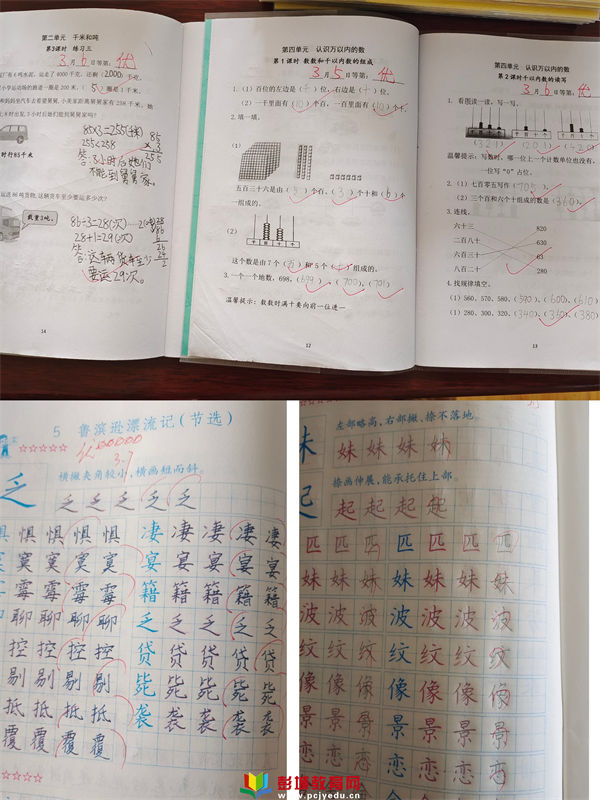 第二单元 千米和吨
第3课时 练习三
3月5日等第: 优
运走了4000千克, 还剩(2000)千克。
小学运动场的跑道一圈是200米, (5)圈是1千米。
85×3=255(千米)
255<258
答:3小时后她们
不能到舅舅家。
85
× 3
255
时行85千米
运送86吨货物, 这辆货车至少要运多少次?
载重3吨。
86÷3=28(次)
28+1=29(次)
答:这辆货车至少
要运29次。
14
第四单元 认识万以内的数
第1课时 数数和千以内数的组成
3月5日等第: 优
1. (1) 百位的左边是(千)位, 右边是(十)位。
(2) 一千里面有(10)个百, 一百里面有(10)个十。
2. 填一填。
(1)
五百三十六是由(5)个百、(3)个十和(6)个
一组成的。
(2)
千 百 十 个
这个数是由7个(百)和5个(十)组成的。
3. 一个一个地数, 698, (699)、(700)、(701)
温馨提示: 数数时满十要向前一位进一
12
第四单元 认识万以内的数
第2课时千以内数的读写
3月6日等第: 优
1. 看图读一读, 写一写。
(321) (201) (440)
温馨提示: 写数时, 哪一位上一个计数单位也没有,
一位写“0”占位。
2. (1) 七百零五写作(705)。
(2) 三个百和六个十组成的数是(360)。
3. 连线。
六十三 820
二百八十 630
六百三十 63
八百二十 280
4. 找规律填空。
(1) 560, 570, 580, (590)、(600)、(610)
(1) 280, 300, 320, (340)、(360)、(380)
13
5 鲁滨逊漂流记(节选)
优
3.7
横撇夹角较小, 横画短而斜。
乏 乏 乏 乏 乏 乏
惧 惧 惧 惧 惧 凄 凄 凄 凄 凄
寞 寞 寞 寞 宴 宴 宴 宴 宴
霉 霉 霉 霉 籍 籍 籍 籍 籍
聊 聊 聊 聊 乏 乏 乏 乏 乏
控 控 控 控 贷 贷 贷 贷 贷
剔 剔 剔 剔 毙 毙 毙 毙 毙
抵 抵 抵 抵 袭 袭 袭 袭 袭
覆 覆 覆 覆
左部略高, 右部撇、捺不落地。
妹 妹 妹 妹 妹
捺画伸展, 能承托住上部。
起 起 起 起 起
匹 匹 匹 匹 匹 匹 匹
妹 妹 妹 妹 妹 妹 妹
波 波 波 波 波 波 波
纹 纹 纹 纹 纹 纹 纹
像 像 像 像 像 像 像
景 景 景 景 景 景 景
恋 恋 恋 恋 恋 恋 恋
彭城教育网
www.pcjyedu.cn